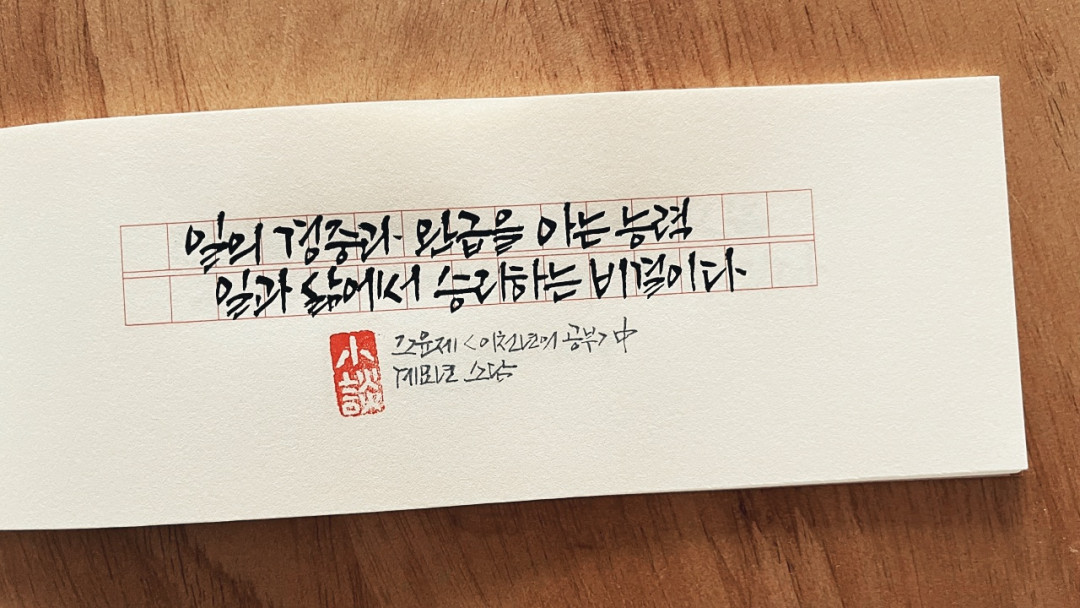 일의 경중과 완급을 아는 능력
일과 삶에서 승리하는 비결이다.
조윤제 <이천년의 공부> 中
계묘년 소담
小談